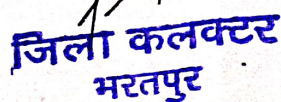 जिला कलक्टर
भरतपुर